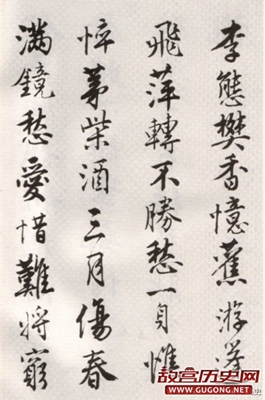 李態樊香憶舊游
飛萍轉不勝愁一身憔
悴茅柴酒三月傷春
滿鏡愁愛惜難將窮
故宫历史网
史